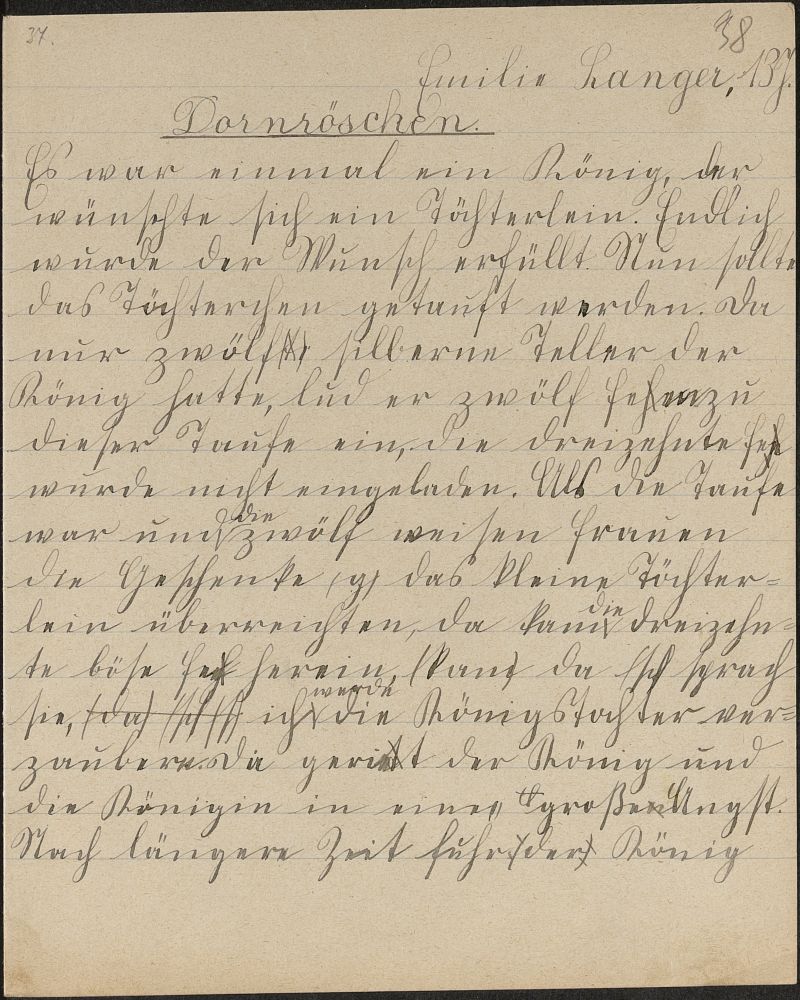 37.
38
Emilie Langer, 13J.
Dornröschen.
Es war einmal ein König, der
wünschte sich ein Töchterlein. Endlich
wurde der Wunsch erfüllt. Nun sollte
das Töchterchen getauft werden. Da
nur zwölf silberne Teller der
König hatte, lud er zwölf Feen zu
dieser Taufe ein, die dreizehnte Fee
wurde nicht eingeladen. Als die Taufe
war und die zwölf weisen Frauen
die Geschenke (g) das kleine Töchter=
lein überreichten, da kam die dreizehn=
te böse Fee herein, (kam) da (sch sprach
sie, (da) ich werde die Königstochter ver=
zaubern. Da geriet der König und
die Königin in eine große Angst.
Nach längere Zeit fuhr (der) König